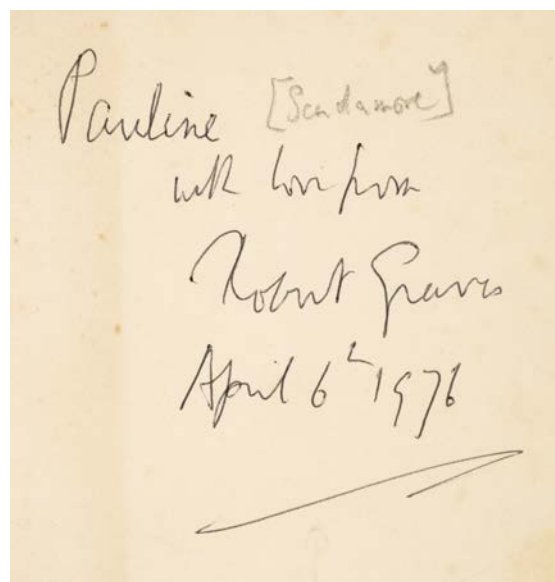 Pauline [Scudamore]
with love from
Robert Graves
April 6th 1976